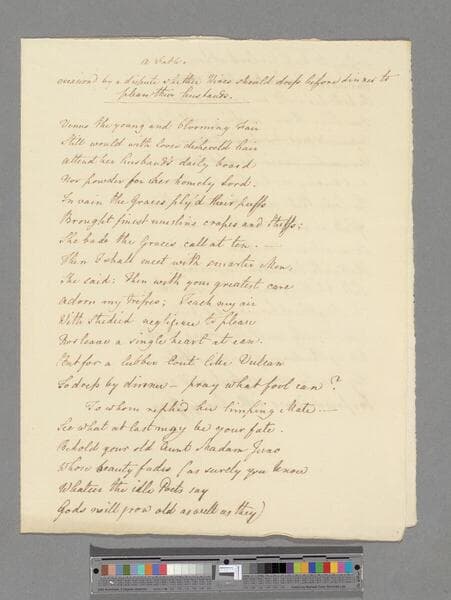 a Fable.
occasion'd by a dispute whether Wives should dress before dinner to
please their husbands.
Venus the young and blooming Fair
Still would with loose dishevel'd hair
attend her husband's daily board
Nor powder for her homely Lord.
In vain the Graces ply'd their puffs
Brought finest muslins, crapes and stuffs;
She bade the Graces call at ten. —
Then I shall meet with smarter Men,
She said: Then with your greatest care
adorn my tresses; Teach my air
With studied negligence to please
Nor leave a single heart at ease.
But for a lubber Lout like Vulcan
To dress by dinner — pray what fool can?
To whom reply'd her limping Mate —
See what at last may be your fate.
Behold your old Aunt Madam Juno
Whose beauty fades (as surely you know
Whate'er the idle Poets say
Gods will grow old as well as they)